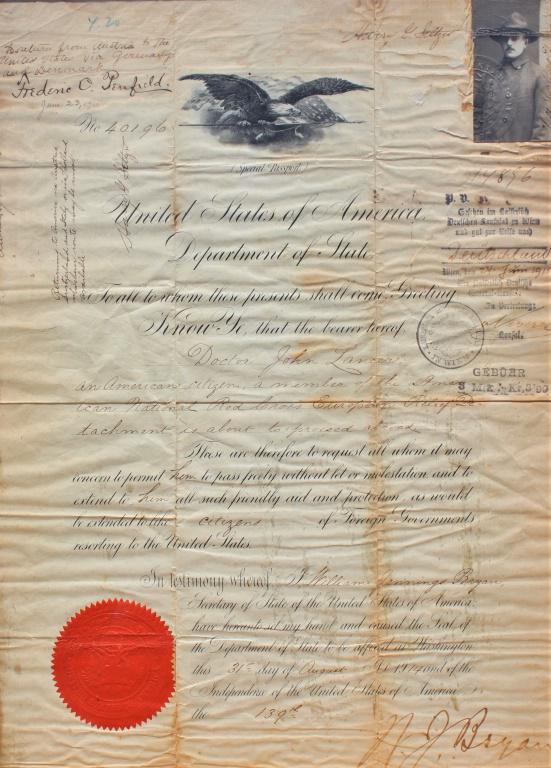 4.20
To return from Austria to the
United States via Germany
and Denmark.
Frederic C. Penfield.
June 23, 191
No 40196
(Special Passport)
United States of America,
Department of State,
To all to whom these presents shall come, Greeting
Know Ye, that the bearer hereof,
Doctor John
an American citizen, a member of the Amer
ican National Red Cross European Relief De
tachment is about to proceed abroad
These are therefore to request all whom it may
concern to permit him to pass freely without let or molestation and to
extend to him all such friendly aid and protection, as would
be extended to like citizens of Foreign Governments
resorting to the United States.
In testimony whereof, I William Jennings Bryan,
Secretary of State of the United States of America,
have hereunto set my hand and caused the Seal of
the Department of State to be affixed at Washington
this 31st day of August A.D. 1914 and of the
Independence of the United States of America
the 139th
W. J. Bryan
14896
Gesehen im Kaiserlich
Deutschen Konsulat zu Wien
und gut zur Reise nach
Deutschland
Wien, den 24 Juni 191
In Vertretung
Konsul.
GEBÜHR
3 M.